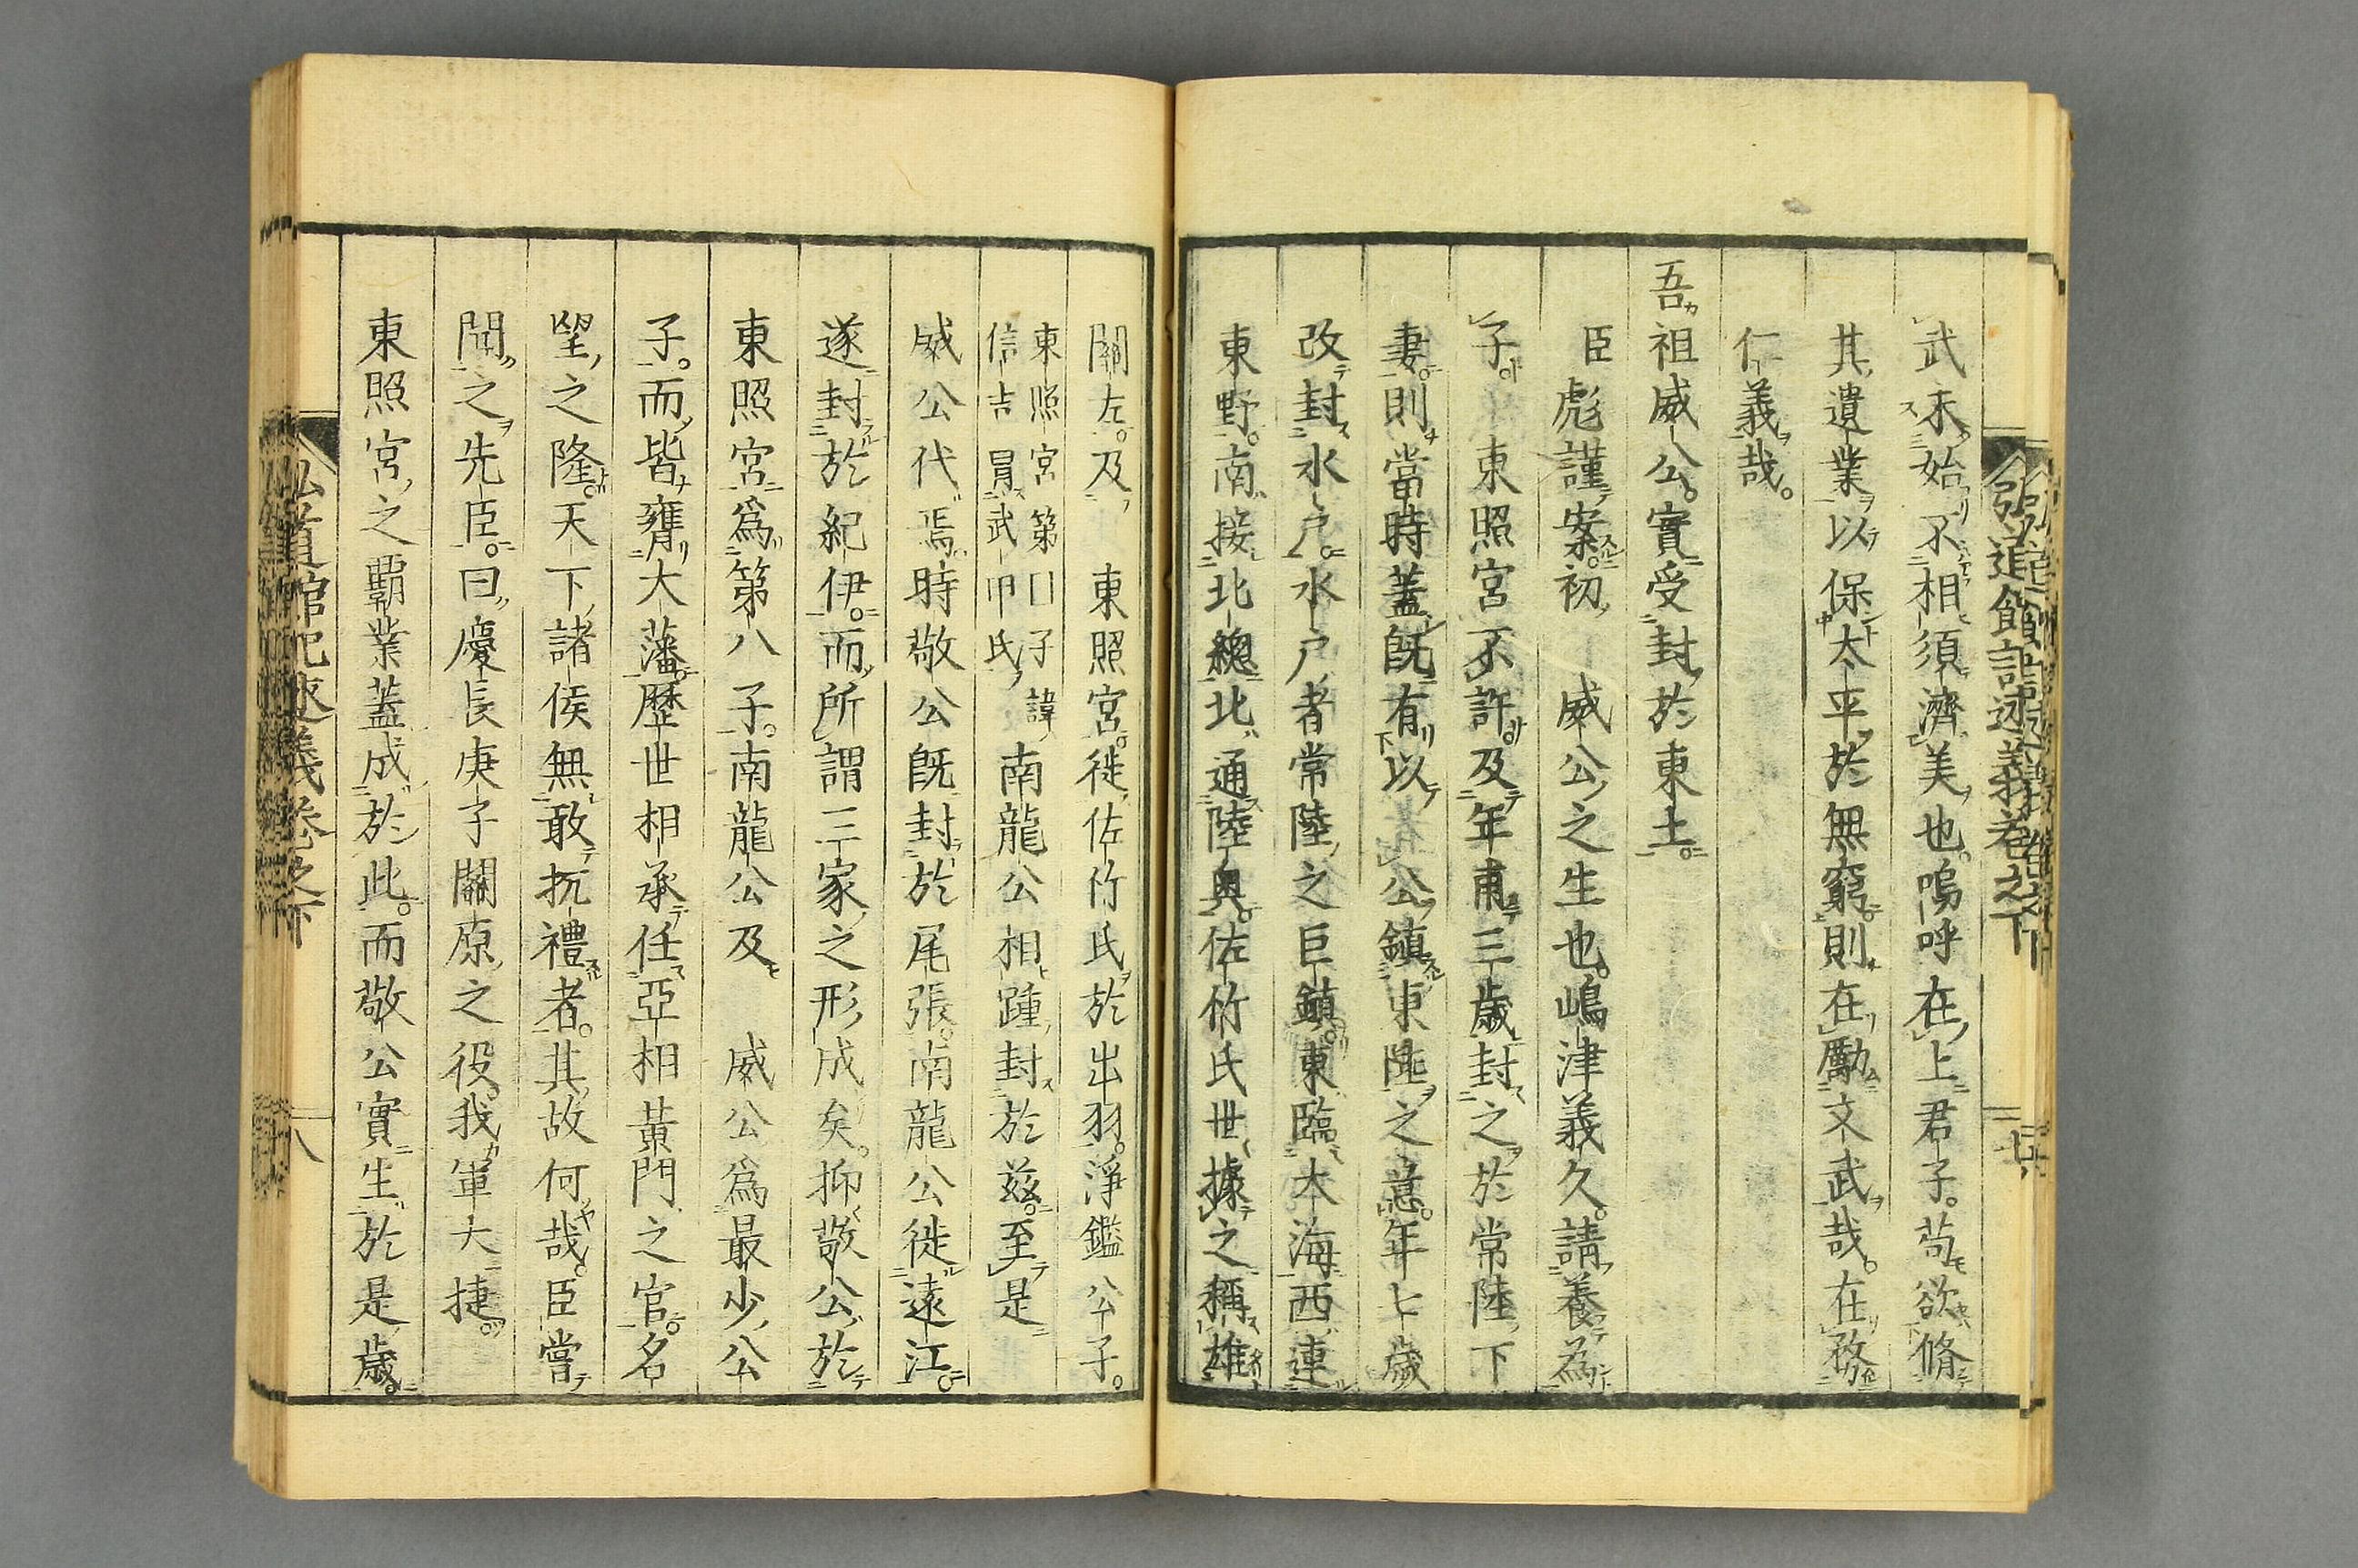 武未始不相須濟美也嗚呼在上君子苟欲脩
其遺業以保太平於無窮則在勵文武哉在務
仁義哉
吾祖威公實受封於東土
臣彪謹案初　威公之生也嶋津義久請養為
子　東照宮不許及年甫三歳封之於常陸下
妻則當時蓋既有以　公鎮東陲之意年七歳
改封水戸水戸者常陸之巨鎮東臨大海西連
東野南接北總北通陸奥佐竹氏世據之稱雄
關左及　東照宮徙佐竹氏於出羽淨鑑公子
東照宮第 子諱
信吉冐武田氏
南龍公相踵封於茲至是
威公代焉時敬公既封於尾張南龍公徙遠江
遂封於紀伊而所謂三家之形成矣抑敬公於
東照宮爲第八子南龍公及　威公爲最少公
子而皆膺大藩歴世相承任亞相黄門之官名
望之隆天下諸侯無敢抗禮者其故何哉臣嘗
聞之先臣曰慶長庚子關原之役我軍大捷
東照宮之覇業蓋成於此而敬公實生於是歳
弘道館記述義巻之下
弘道館記述義巻之下　八